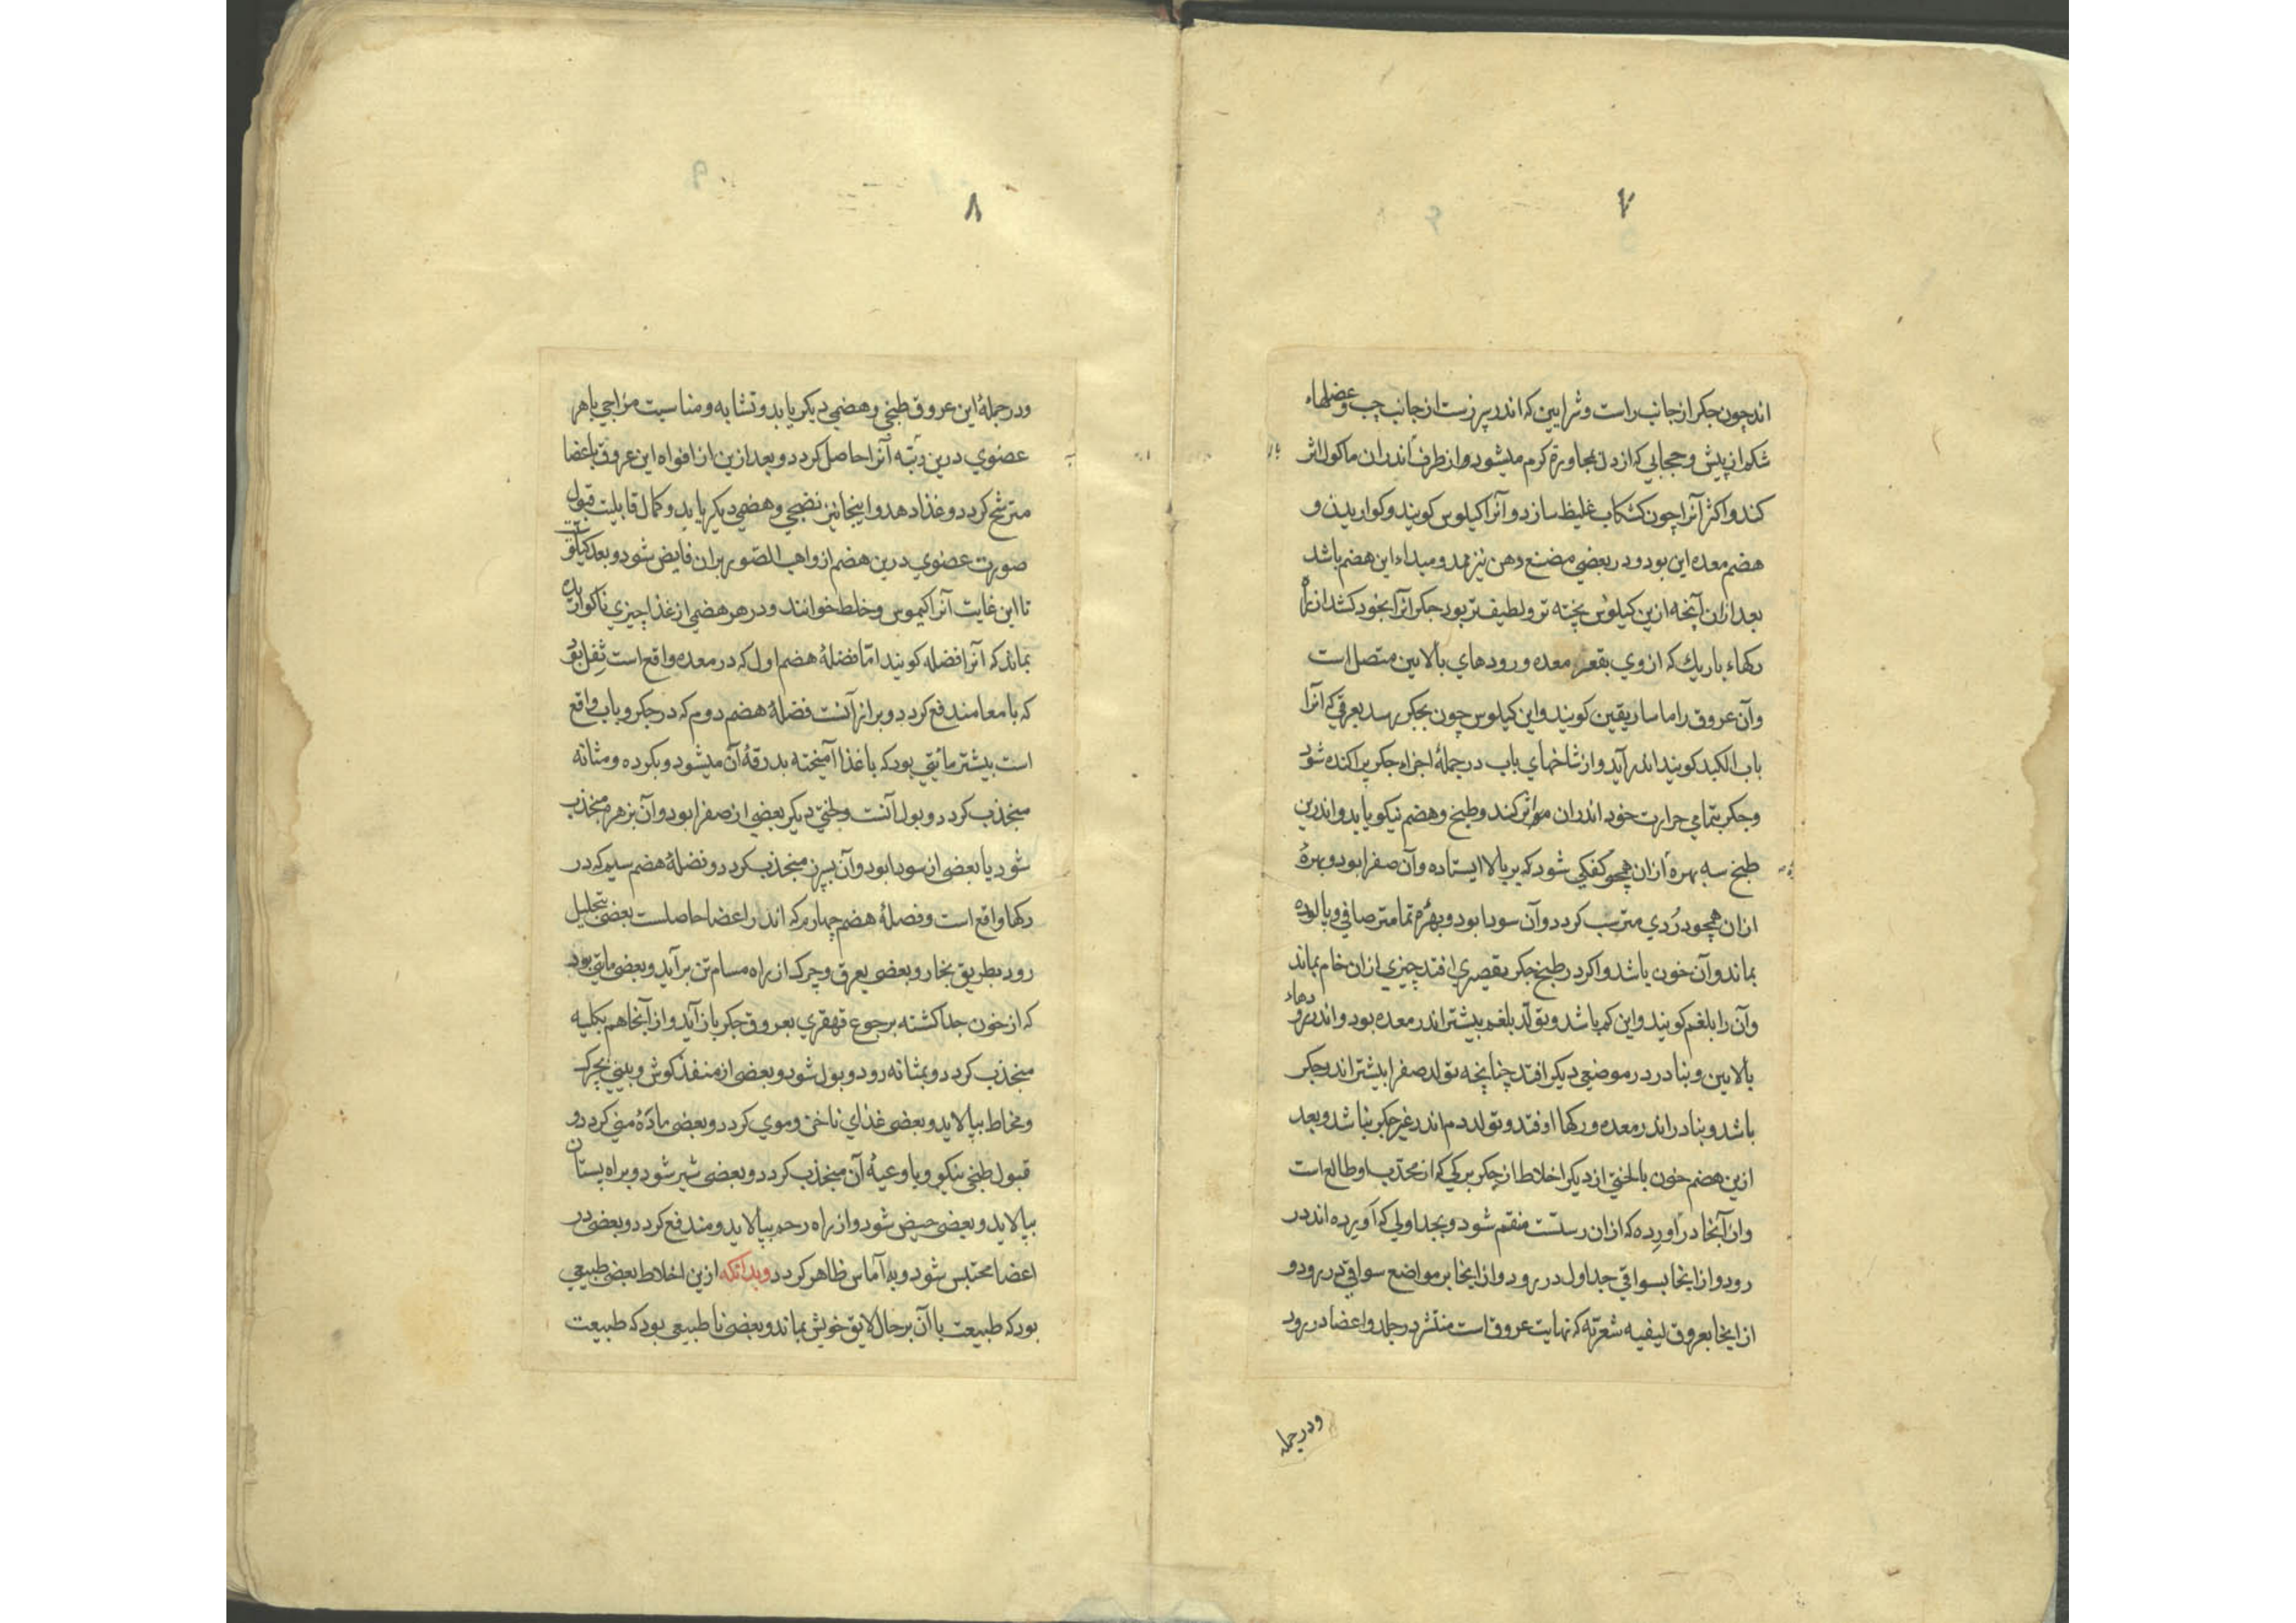 ۷
اند چون جکر از جانب راست و شرایین که اندر سپرزست از جانب چپ و عضلهاء
شکم از پیش و حجابی که از دل بمجاورة کرم میشود و از طرف اندران ماکول اثر
کند و اکثر آنرا چون کشکاب غلیظ سازد و آنرا کیلوس کویند و کواریدن و
هضم معده این بود و در بعضی مضغ دهن نیز ممد و مبداء این هضم باشد
بعد ازان آنچه ازین کیلوس پخته تر و لطیف تر بود جکر آنرا بخود کشد از راه
رکهاء باریك که از وی بقعر معده و رودهای بالایین متصل است
و آن عروق را ماساریقین کویند و این کیلوس چون بجکر رسد بعرقی که آنرا
باب الکبد کویند اندر آید و از شاخهای باب در جملهٔ اجزاء جکر پراکنده شود
و جکر بتمامی حرارت خود اندران موثر کند و طبخ و هضم نیکو یابد و اندرین
طبخ سه بهره ازان همچو کفکی شود که بر بالا ایستاده و آن صفرا بود و بهرهٔ
ازان همچو دُردی مترسب کردد و آن سودا بود و بهرهٔ تمامتر صافی و پالوده
بماند و آن خون باشد و اکر در طبخ جکر تقصیری افتد چیزی ازان خام بماند
و آن را بلغم کویند و این کم باشد و تولّد بلغم بیشتر اندر معده بود و اندر رودهاء
بالایین و بنادر در موضعی دیکر افتد چنانچه تولد صفرا بیشتر اندر جکر
باشد و بنادر اندر معده و رکها اوفتد و تولد دم اندر غیر جکر نباشد و بعد
ازین هضم خون بالختی از دیکر اخلاط از جکر برکی که از محدّب او طالع است
و از آنجا در آورده که ازان رستست منقسم شود و بجداولی که آورده اند در
رود و از اینجا بسواقی جداول در رود و از اینجا بر مواضع سواقی در رود و
از اینجا بعروق لیفیه شعریّه که نهایت عروق است منتشر در جلد و اعضا در رود
ودرجمله
۸
و در جملهٔ این عروق طبخی و هضمی دیکر یابد و تشابه و مناسبت مزاجی با هر
عضوی درین رتبه آنرا حاصل کردد و بعد ازین از افواه این عروق باعضا
مترشح کردد و غذا دهد و اینجا نیز نضجی و هضمی دیکر یابد و کمال قابلیت قبول
صورت عضوی درین هضم از واهب الصّور بران فایض شود و بعد کیلوسی
تا این غایت آنرا کیموس و خلط خوانند و در هر هضمی از غذا چیزی ناکواریده
بماند که آنرا فضله کویند امّا فضلهٔ هضم اول که در معده واقع است ثفل بود
که بامعا مندفع کردد و براز آنست فضلهٔ هضم دوم که در جکر و باب واقع
است بیشتر مائیّتی بود که با غذا آمیخته بدرقهٔ آن میشود و بکرده و مثانه
منجذب کردد و بول آنست و لختی دیکر بعضی از صفرا بود و آن بزهره منجذب
شود یا بعضی از سودا بود و آن بسپرز منجذب کردد و فضلهٔ هضم سیم که در
رکها واقع است و فضلهٔ هضم چهارم که اندر اعضا حاصلست بعضی بتحلیل
رود بطریق بخار و بعضی بعرق و چرك از راه مسام تن برآید و بعضی مایتی بود
که از خون جدا کشته برجوع قهقری بعروق جکر باز آید و از آنجا هم بکلیه
منجذب کردد و بمثانه رود و بول شود و بعضی از منفذ کوش و بینی بچرك
و مخاط بپالاید و بعضی غذای ناخن و موی کردد و بعضی مادّهٔ منی کردد و
قبول طبخی نیکو و باوعیهٔ آن منجذب کردد و بعضی شیر شود و براه پستان
بپالاید و بعضی حیض شود و از راه رحم بپالاید و مندفع کردد و بعضی در
اعضا محتبس شود و به آماس ظاهر کردد و بدانکه ازین اخلاط بعضی طبیعی
بود که طبیعت با آن بر حال لایق خویش بماند و بعضی نا طبیعی بود که طبیعت